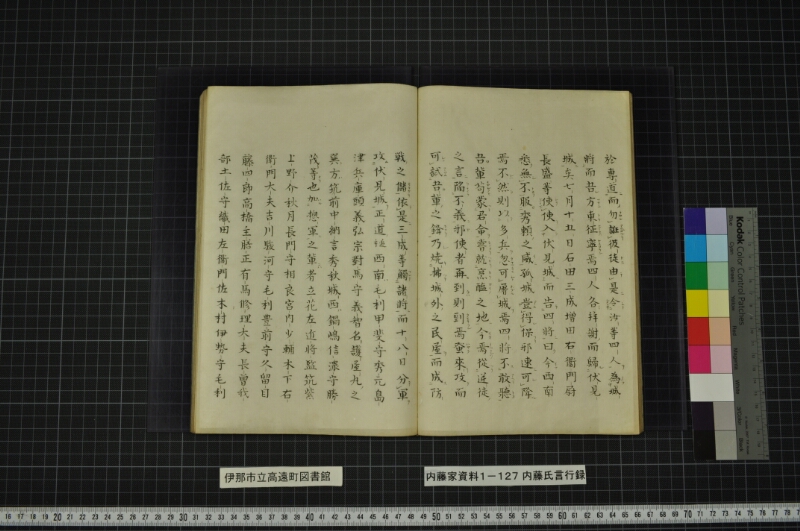 於專道而勿誑彼後由是令汝等四人為城
將而吾方東征寧焉四人各拜謝而歸伏見
城矣七月十五日石田三成増田右衛門尉
長盛等使使入伏見城而告四將曰今西南
悉無不服秀頼之威孤城豈得保邪速可降
焉不然則以多兵忽可屠城焉四將不敢聽
之言陷不義邪使者再到則到焉蚤來攻而
可試吾輩之鋒乃燒拂城外之民屋而成防
戰之備依是三成等觸諸將而十八日分軍
攻伏見城正道從西南毛利甲斐守秀元島
津兵庫頭義弘宗對馬守義智名護屋九之
冀方筑前中納言秀秋城西鍋嶋信濃守勝
茂等也加想軍之輩者立花左近將監筑紫
上野介秋月長門守相良宮内少輔木下右
衛門大夫吉川駿河守毛利豊前守久留目
藤四郎高橋主膳正有馬修理大夫長曾我
部土佐守織田左衛門佐木村伊勢守毛利
伊那市立高遠町図書館
内藤家資料1－127 内藤氏言行録
Kodak Color Control Patches